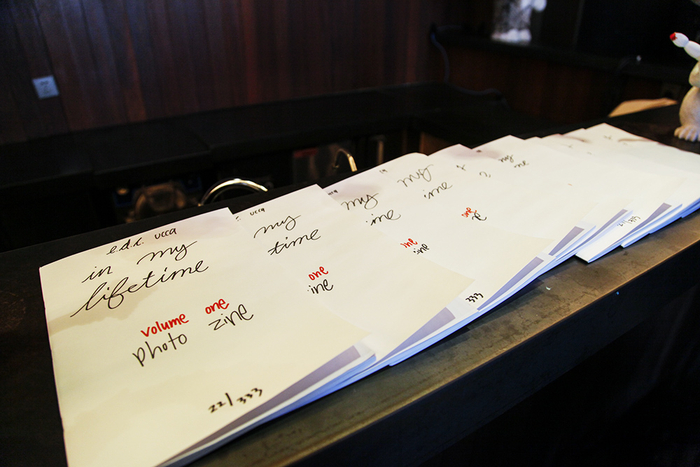 edk ucca
in my
lifetime
volume one
photo zine
22/333
ucca
my
time
one
ine
333
my
ime
one
ine
my
ime
one